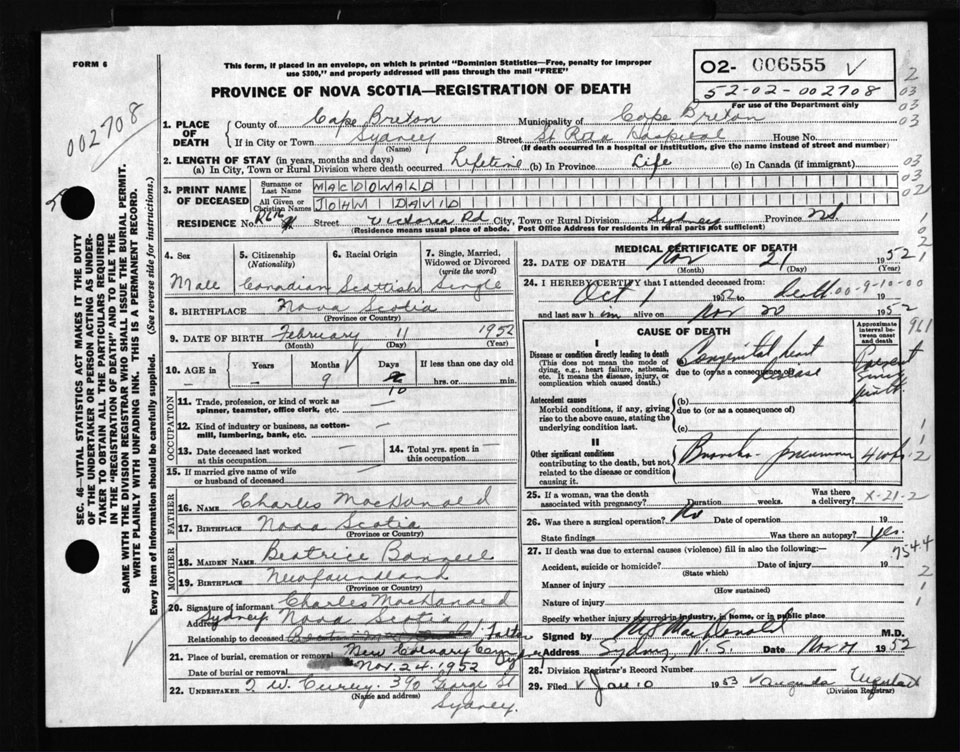 FORM 6
This form, if placed in an envelope, on which is printed "Dominion Statistics—Free, penalty for improper
use $300," and properly addressed will pass through the mail "FREE"
PROVINCE OF NOVA SCOTIA—REGISTRATION OF DEATH
02- 006555 V
52-02-002708
For use of the Department only
002708
SEC. 46—VITAL STATISTICS ACT MAKES IT THE DUTY
OF THE UNDERTAKER OR PERSON ACTING AS UNDER-
TAKER TO OBTAIN ALL THE PARTICULARS REQUIRED
IN THE "REGISTRATION OF DEATH" AND TO FILE THE
SAME WITH THE DIVISION REGISTRAR WHO SHALL ISSUE THE BURIAL PERMIT.
WRITE PLAINLY WITH UNFADING INK. THIS IS A PERMANENT RECORD.
Every item of information should be carefully supplied. (See reverse side for instructions.)
1. PLACE OF DEATH
County of Cape Breton Municipality of Cape Breton
If in City or Town Sydney Street St Rita Hospital House No.
(Name) (If death occurred in a hospital or institution, give the name instead of street and number)
2. LENGTH OF STAY (in years, months and days)
(a) In City, Town or Rural Division where death occurred Lifetime (b) In Province Life (c) In Canada (if immigrant)
3. PRINT NAME OF DECEASED
Surname or Last Name MACDONALD
All Given or Christian Names JOHN DAVID
RESIDENCE No. Street Victoria Rd City, Town or Rural Division Sydney Province NS
(Residence means usual place of abode. Post Office Address for residents in rural parts not sufficient)
4. Sex
Male
5. Citizenship (Nationality)
Canadian
6. Racial Origin
Scottish
7. Single, Married, Widowed or Divorced (write the word)
Single
8. BIRTHPLACE Nova Scotia
(Province or Country)
9. DATE OF BIRTH February 11 1952
(Month) (Day) (Year)
10. AGE in Years Months Days If less than one day
— 9 10 hrs. or min.
OCCUPATION
11. Trade, profession, or kind of work as
spinner, teamster, office clerk, etc. —
12. Kind of industry or business, as cotton-
mill, lumbering, bank, etc. —
13. Date deceased last worked
at this occupation —
14. Total yrs. spent in
this occupation —
15. If married give name of wife
or husband of deceased
FATHER
16. NAME Charles MacDonald
17. BIRTHPLACE Nova Scotia
(Province or Country)
MOTHER
18. MAIDEN NAME Beatrice
19. BIRTHPLACE Newfoundland
(Province or Country)
20. Signature of informant Charles MacDonald
Address Sydney Nova Scotia
Relationship to deceased Father
21. Place of burial, cremation or removal New Calvary Cem Sydney
Date of burial or removal Nov. 24. 1952
22. UNDERTAKER T. W. Curry. 390 George St
(Name and address) Sydney.
MEDICAL CERTIFICATE OF DEATH
23. DATE OF DEATH Nov 21 1952
(Month) (Day) (Year)
24. I HEREBY CERTIFY that I attended deceased from:
Oct 1 1952 to Death 19
and last saw him alive on Nov 20 1952
00-9-10-00
CAUSE OF DEATH
Approximate interval between onset and death
I
Disease or condition directly leading to death
(This does not mean the mode of
dying, e.g., heart failure, asthenia,
etc. It means the disease, injury, or
complication which caused death.)
Congenital heart disease
due to (or as a consequence of)
Present since birth
Antecedent causes
Morbid conditions, if any, giving
rise to the above cause, stating the
underlying condition last.
(b)
due to (or as a consequence of)
(c)
II
Other significant conditions
contributing to the death, but not
related to the disease or condition
causing it.
Broncho-pneumonia 4 wks
25. If a woman, was the death
associated with pregnancy? Duration weeks. Was there a delivery?
X-21-2
26. Was there a surgical operation? No Date of operation 19
State findings Was there an autopsy? Yes.
754.4
27. If death was due to external causes (violence) fill in also the following:—
Accident, suicide or homicide? Date of injury 19
(State which)
Manner of injury
(How sustained)
Nature of injury
Specify whether injury occurred in industry, in home, or in public place
Signed by MacDonald M.D.
Address Sydney N.S. Date Nov 21 1952
28. Division Registrar's Record Number
29. Filed Jan 10 1953
(Division Registrar)